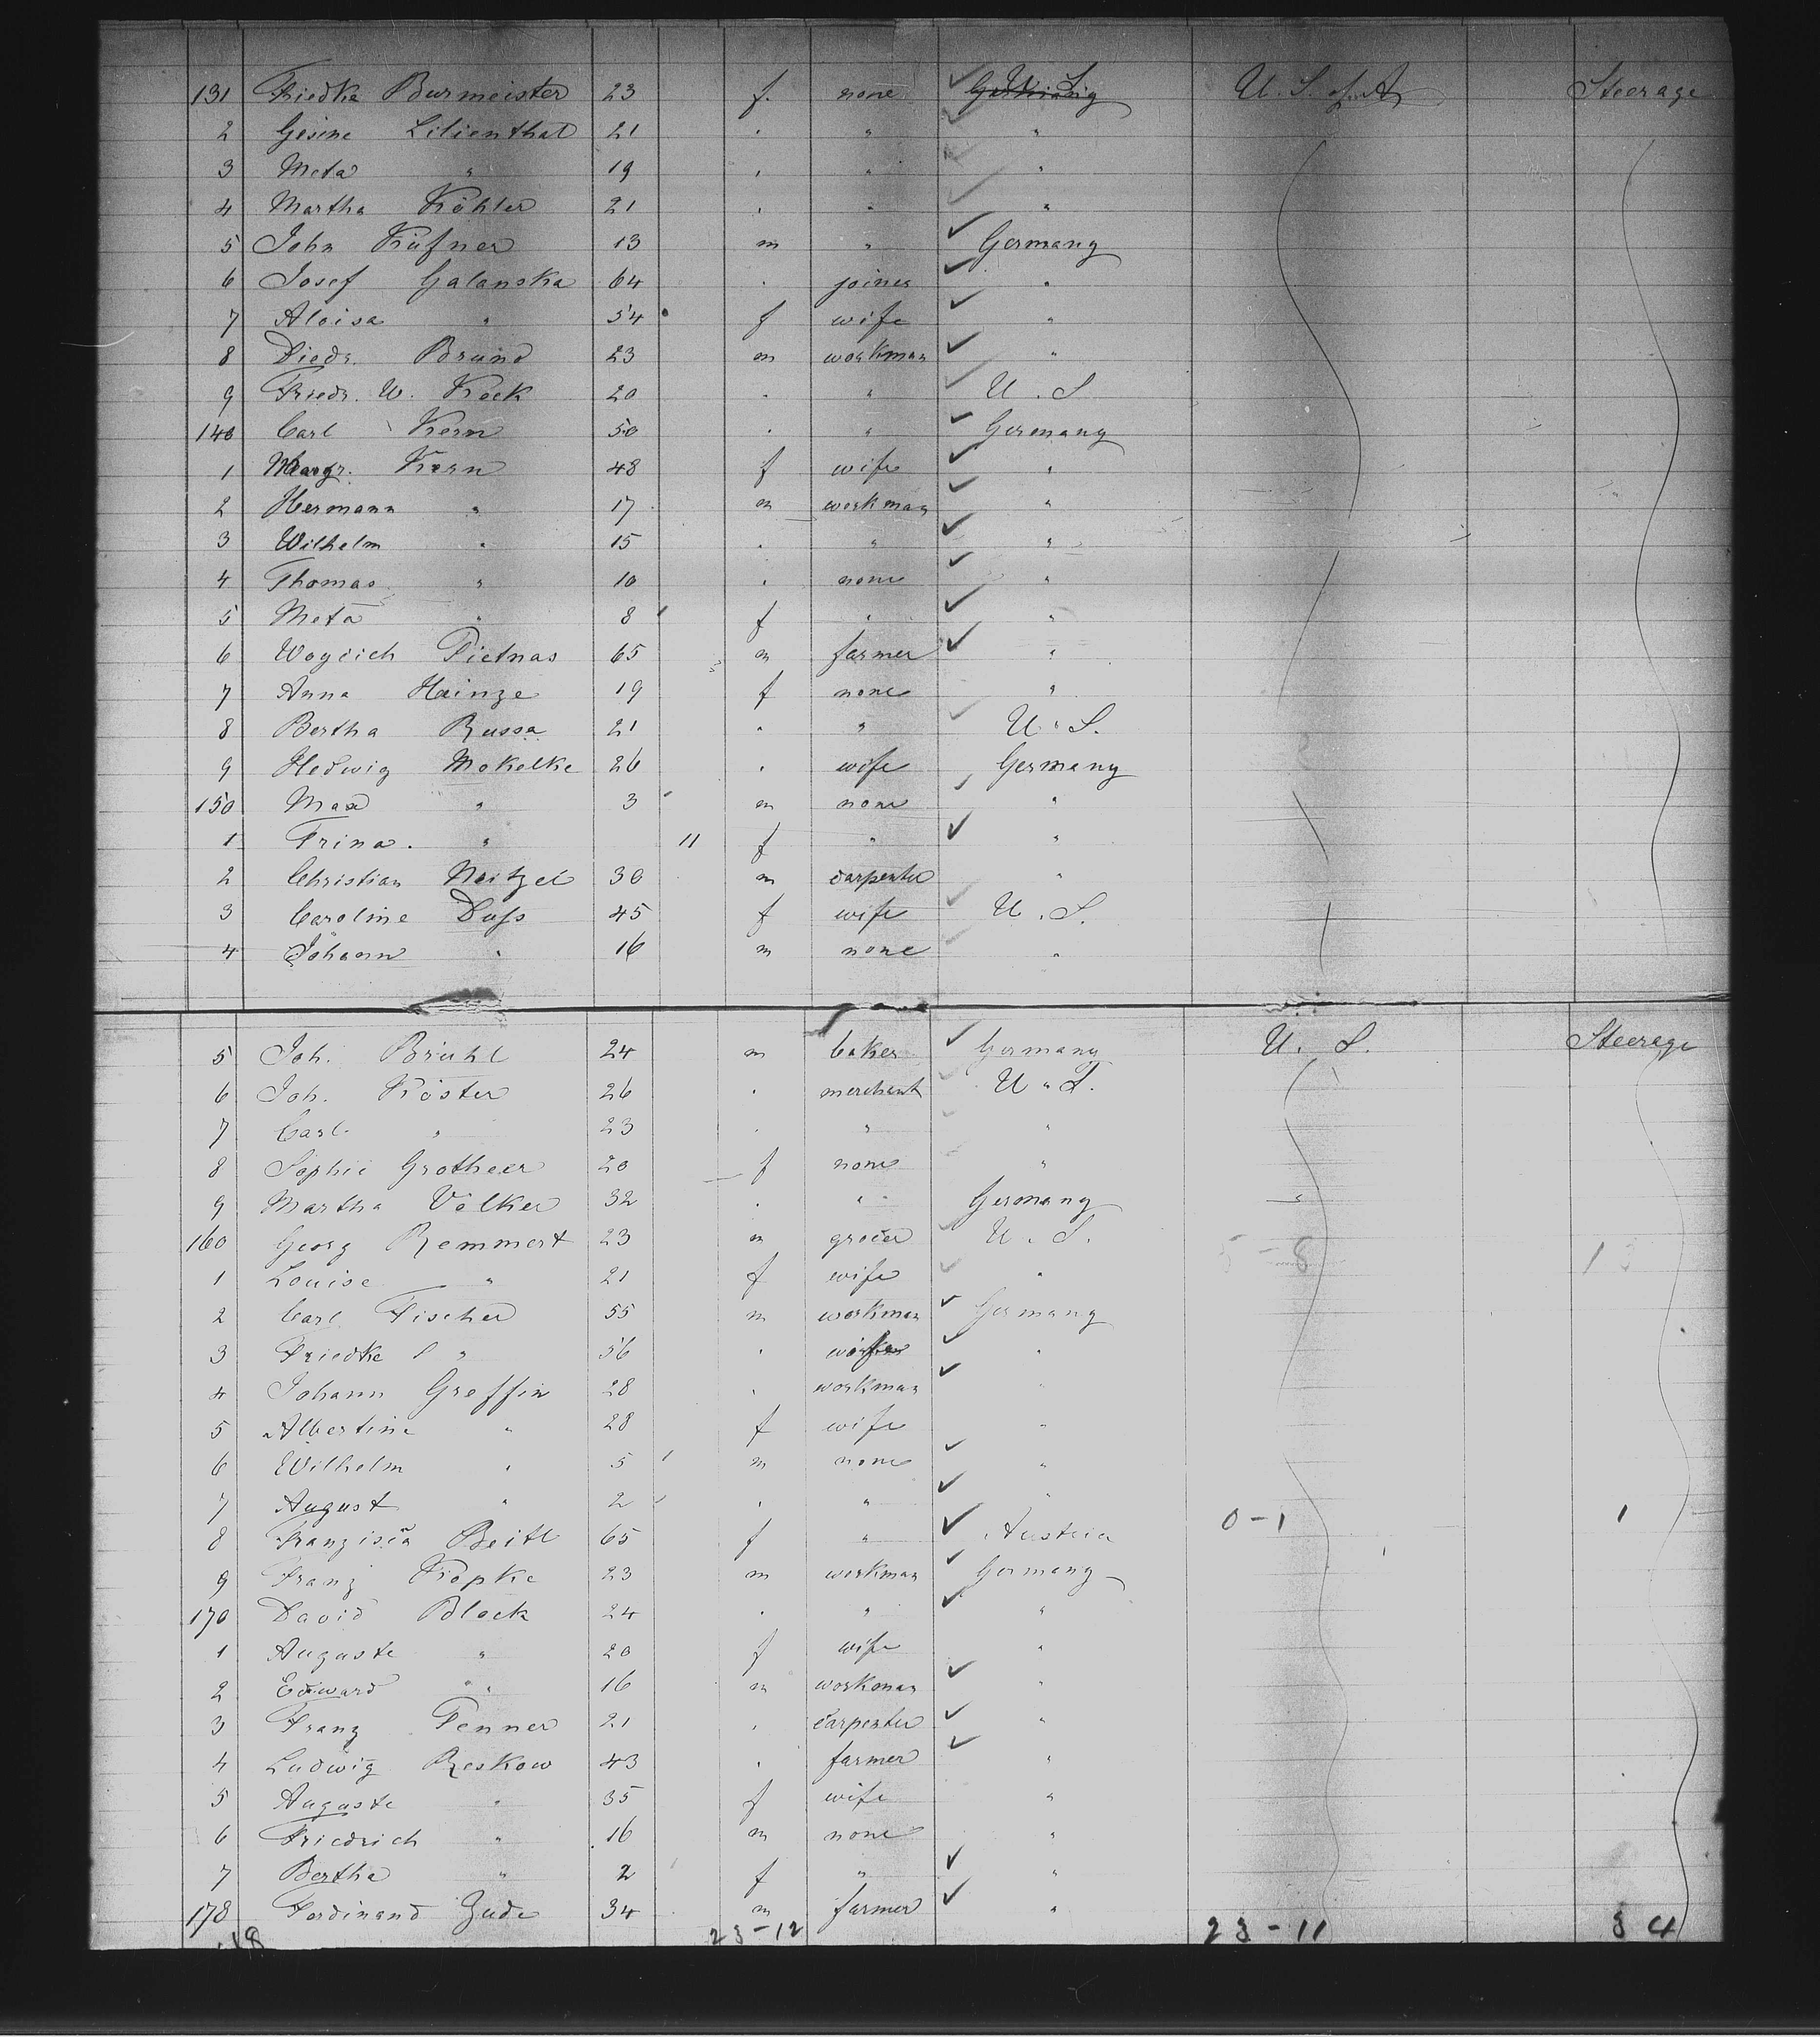 131 Friedke Burmeister 23 f. none U. S. U. S. of A Steerage
2 Gesine Lilienthal 21 . " "
3 Meta " 19 . " "
4 Martha Köhler 21 . " "
5 John Küfner 13 m " Germany
6 Josef Galanska 64 . joiner "
7 Aloisa " 54 f wife "
8 Diedr. Brund 23 m workman "
9 Friedr. W. Kock 20 . " U. S
140 Carl Kern 50 . " Germany
1 Margr. Kern 48 f wife "
2 Hermann " 17 m workman "
3 Wilhelm " 15 . " "
4 Thomas " 10 . none "
5 Meta " 8 f " "
6 Woyciech Pietnas 65 m farmer "
7 Anna Heinze 19 f none "
8 Bertha Russa 21 . " U. S.
9 Hedwig Mokelke 26 . wife Germany
150 Max " 3 m none "
1 Trina. " 11 f " "
2 Christian Neitzel 30 m carpenter "
3 Caroline Duss 45 f wife U. S.
4 Johann " 16 m none "
5 Joh. Brühl 24 m baker Germany U. S. Steerage
6 Joh. Köster 26 . merchant U. S.
7 Carl " 23 . " "
8 Sophie Grotheer 20 f none "
9 Martha Völker 32 . " Germany
160 Georg Remmert 23 m grocer U. S. 5-8 13
1 Louise " 21 f wife "
2 Carl Fischer 55 m workman Germany
3 Friedke " 56 . wife "
4 Johann Greffin 28 . workman "
5 Albertine " 28 f wife "
6 Wilhelm " 5 m none "
7 August " 2 . " "
8 Franzisca Beitl 65 f " Austria 0-1 1
9 Franz Köpke 23 m workman Germany
170 David Block 24 . " "
1 Auguste " 20 f wife "
2 Edward " 16 m workman "
3 Franz Fenner 21 . carpenter "
4 Ludwig Reskow 43 . farmer "
5 Auguste " 35 f wife "
6 Friedrich " 16 m none "
7 Bertha " 2 f " "
178 Ferdinand Zude 34 m farmer "
48 23-12 23-11 34